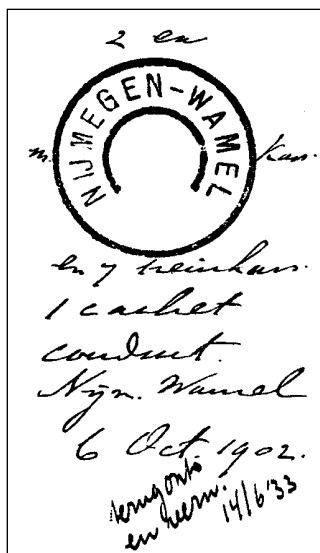 2 en
NIJMEGEN-WAMEL
m. kar.
en 7 treinkar.
1 cachet
conduct.
Nijm. Wamel
6 Oct. 1902.
terugontv.
en vern. 14/6 '33